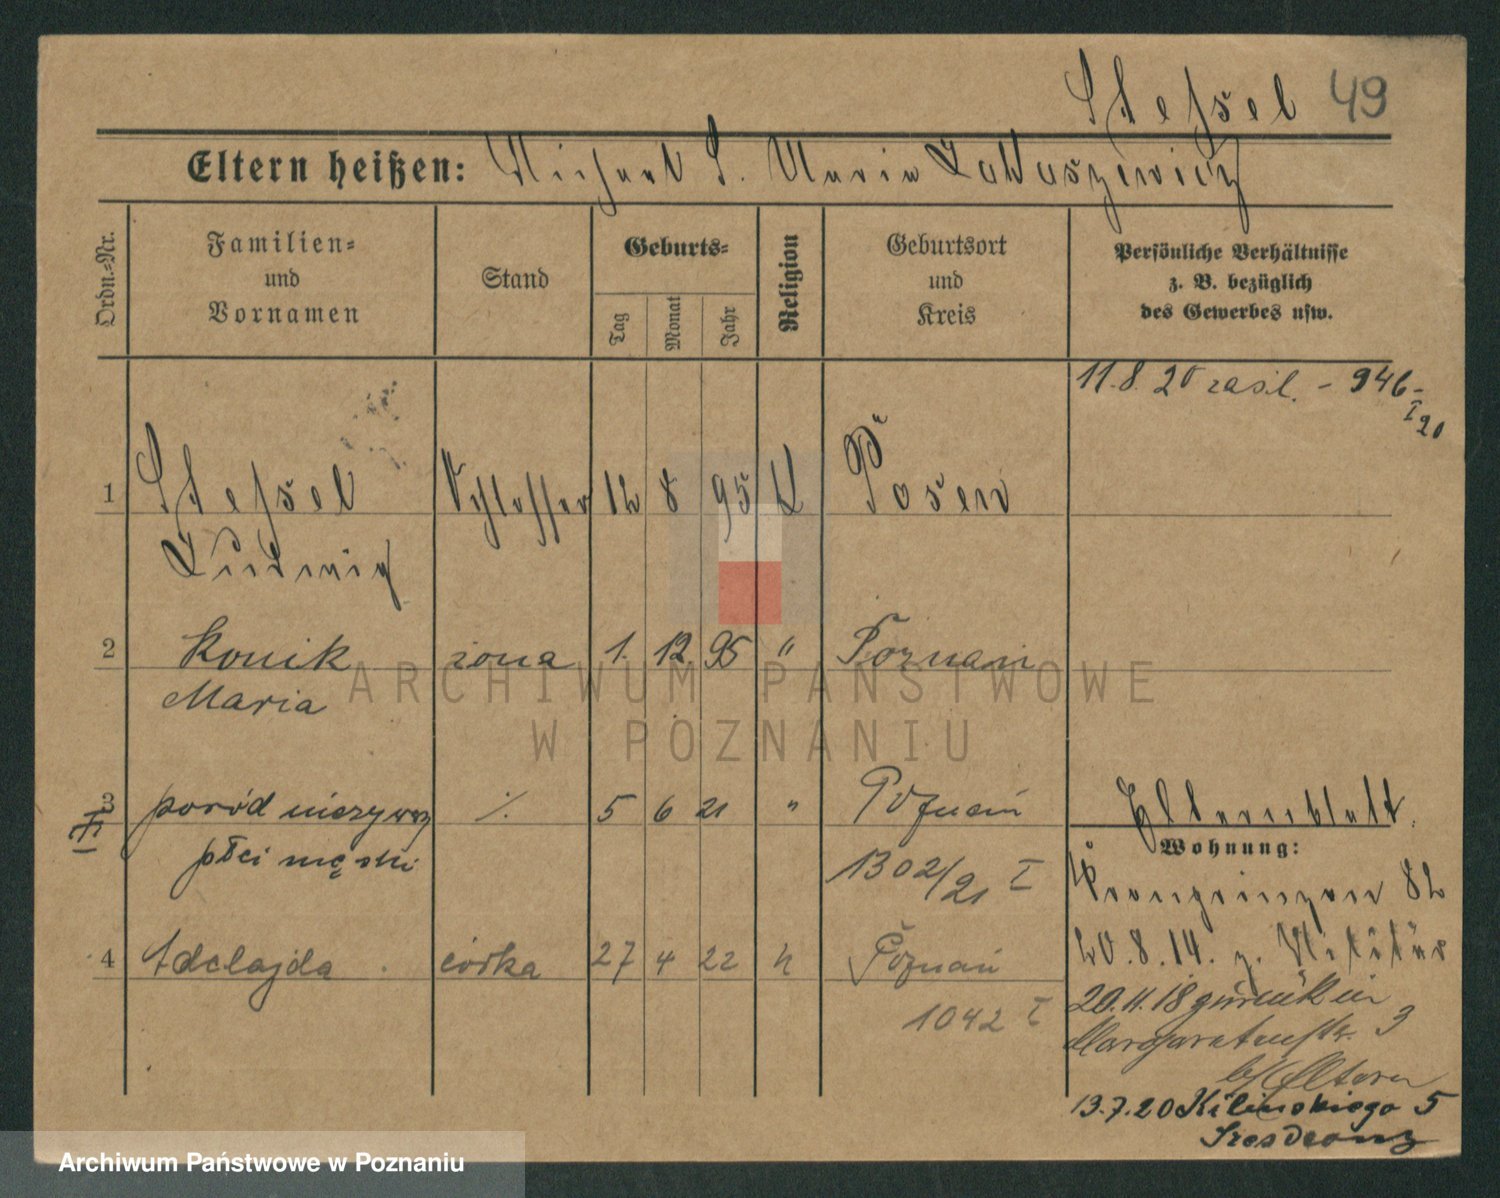 Stefsel 49
Eltern heißen: Michael S. Maria Łukaszewicz
Ordn.-Nr.
Familien-
und
Vornamen
Stand
Geburts-
Tag
Monat
Jahr
Religion
Geburtsort
und
Kreis
Persönliche Verhältnisse
z. B. bezüglich
des Gewerbes usw.
11.8.20 zasil. - 946-
I 20
1 Stefsel Schlosser 12 8 95 K Posen
Ludwig
2 Konik żona 1. 12 95 " Poznań
Maria
3 poród nieżywy ./. 5 6 21 " Poznań
płci męski 1302/21 I
Elternblatt.
Wohnung:
Kronprinzen 82
4 Adelajda córka 27 4 22 " Poznań
1042 I
20.8.14. z. Militär
20.11.18 zurück in
Margaretenstr. 3
b/Eltern
13.7.20 Kilinskiego 5
ARCHIWUM PAŃSTWOWE
W POZNANIU
Archiwum Państwowe w Poznaniu